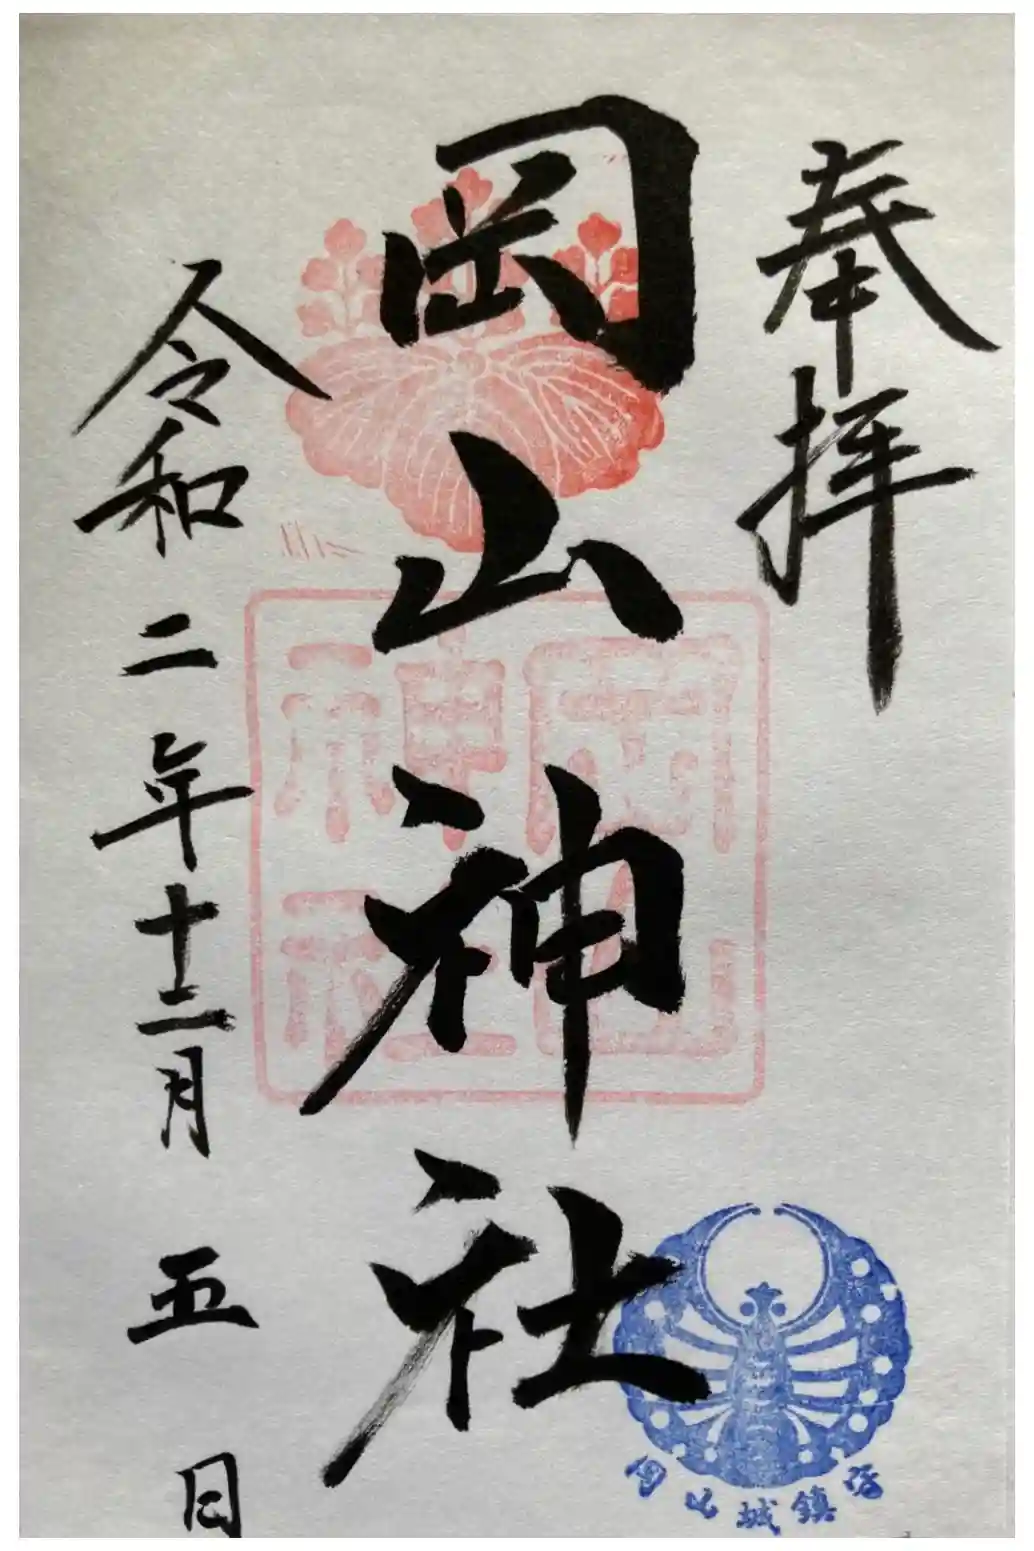 奉拝
岡山神社
岡山神社
令和二年十二月五日
岡山城鎮守